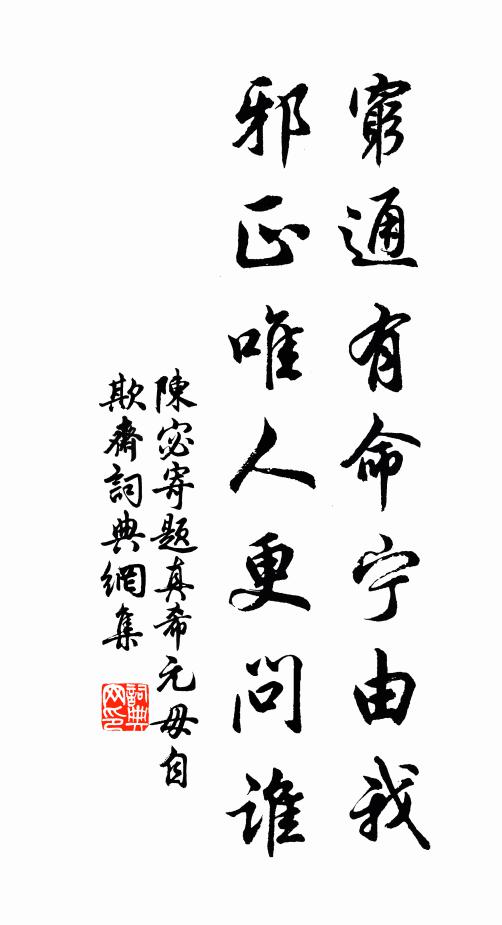 窮通有命宁由我
邪正唯人更問誰
陳宓寄題真希元毋自
欺齋詞典網集
詞典
网印